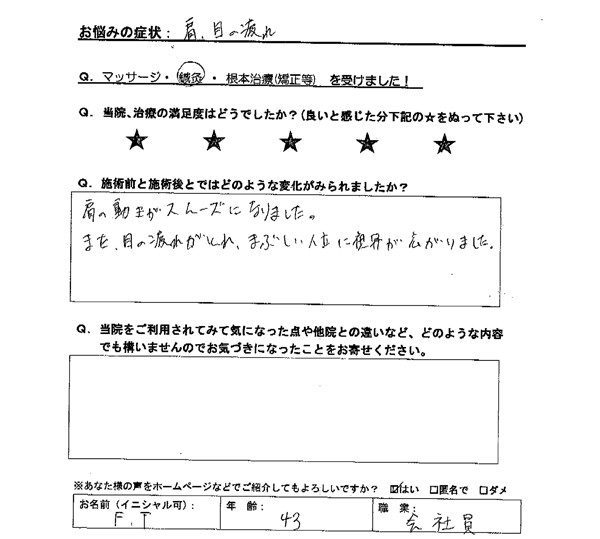 お悩みの症状： 肩、目の疲れ
Q．マッサージ・鍼灸・根本治療(矯正等) を受けました！
Q．当院、治療の満足度はどうでしたか？(良いと感じた分下記の☆をぬって下さい)
★ ★ ★ ★ ★
Q．施術前と施術後とではどのような変化がみられましたか？
肩の動きがスムーズになりました。
また、目の疲れがとれ、まぶしい位に視界が広がりました。
Q．当院をご利用されてみて気になった点や他院との違いなど、どのような内容
でも構いませんのでお気づきになったことをお寄せください。
※あなた様の声をホームページなどでご紹介してもよろしいですか？ ☑はい □匿名で □ダメ
お名前（イニシャル可）： 年 齢： 職 業：
F．T 43 会社員